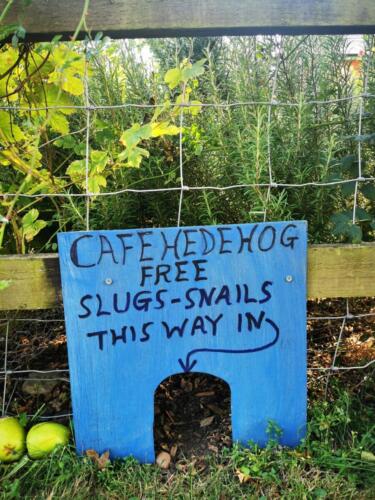 CAFE HEDEHOG
FREE
SLUGS-SNAILS
THIS WAY IN